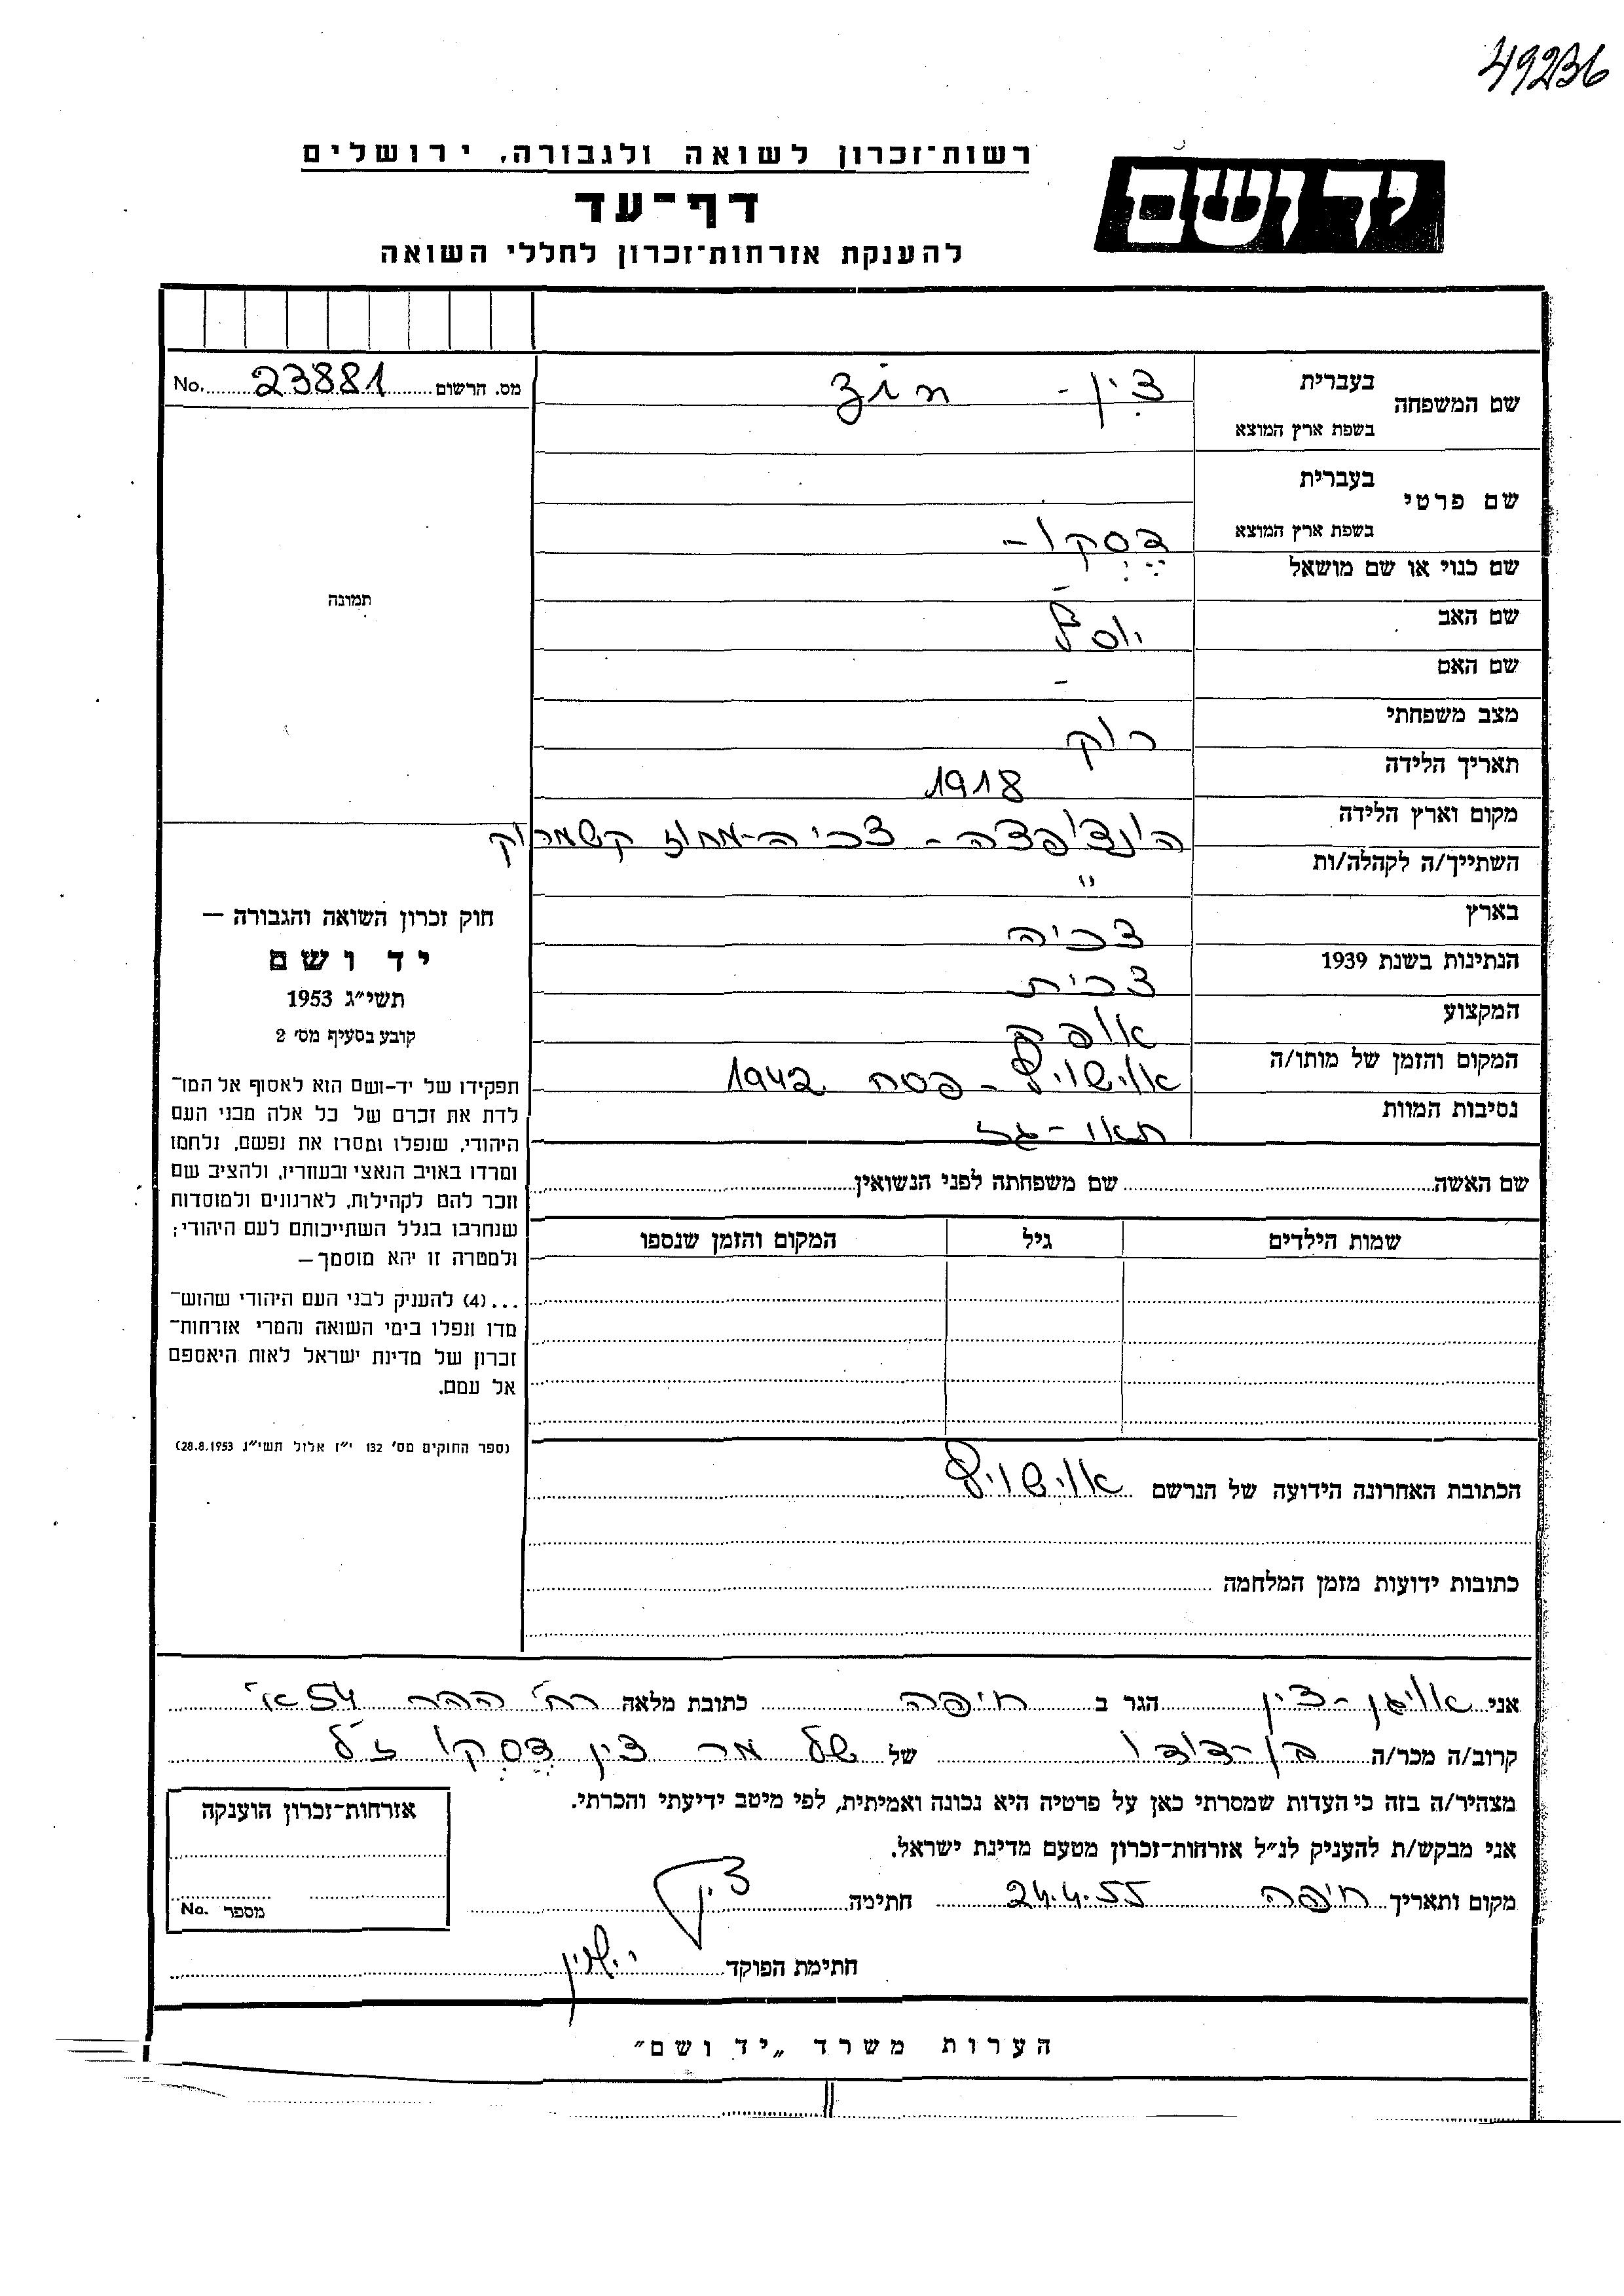 49236
ידושם
רשות־זכרון לשואה ולגבורה, ירושלים
דף־עד
להענקת אזרחות־זכרון לחללי השואה
מס. הרשום 23881 No.
תמונה
שם המשפחה
בעברית צין -
בשפת ארץ המוצא
שם פרטי
בעברית
בשפת ארץ המוצא דסקו -
שם כנוי או שם מושאל -
שם האב יוסף
שם האם -
מצב משפחתי רוק
תאריך הלידה 1918
מקום וארץ הלידה - צכיה - מחוז קשמרוק
השתייך/ה לקהלה/ות "
בארץ צכיה
הנתינות בשנת 1939 צכית
המקצוע אופה
המקום והזמן של מותו/ה אוישויץ - פסח 1942
נסיבות המוות תאו - גז
שם האשה שם משפחתה לפני הנשואין
שמות הילדים גיל המקום והזמן שנספו
הכתובת האחרונה הידועה של הנרשם אוישויץ
כתובות ידועות מזמן המלחמה
חוק זכרון השואה והגבורה —
יד ושם
תשי״ג 1953
קובע בסעיף מס׳ 2
תפקידו של יד-ושם הוא לאסוף אל המו־
לדת את זכרם של כל אלה מבני העם
היהודי, שנפלו ומסרו את נפשם, נלחמו
ומרדו באויב הנאצי ובעוזריו, ולהציב שם
וזכר להם לקהילות, לארגונים ולמוסדות
שנחרבו בגלל השתייכותם לעם היהודי;
ולמטרה זו יהא מוסמך —
...(4) להעניק לבני העם היהודי שהוש־
מדו ונפלו בימי השואה והמרי אזרחות־
זכרון של מדינת ישראל לאות היאספם
אל עמם.
(ספר החוקים מס׳ 132 י״ז אלול תשי״ג 28.8.1953)
אני אויגן - צין הגר ב חיפה כתובת מלאה רח׳ ההר 54 א׳
קרוב/ה מכר/ה בן - דודו של של מר צין דסקו ז״ל
מצהיר/ה בזה כי העדות שמסרתי כאן על פרטיה היא נכונה ואמיתית, לפי מיטב ידיעתי והכרתי.
אני מבקש/ת להעניק לנ״ל אזרחות־זכרון מטעם מדינת ישראל.
מקום ותאריך חיפה 24.4.55 חתימה צין
חתימת הפוקד
אזרחות־זכרון הוענקה
מספר No.
הערות משרד „יד ושם״